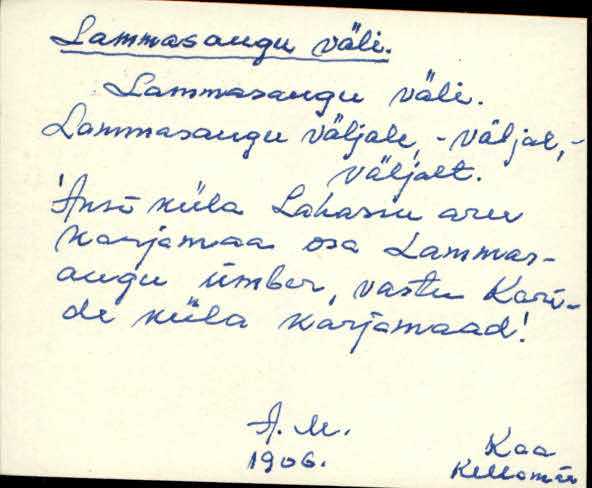 Lammasaugu väli.
Lammasaugu väli.
Lammasaugu väljale, -väljal, -
väljalt.
Ansi küla Lahassu aru
karjamaa osa Lammas-
augu ümber, vastu Kari-
de küla karjamaad!
A. M.
1906.
Kaa